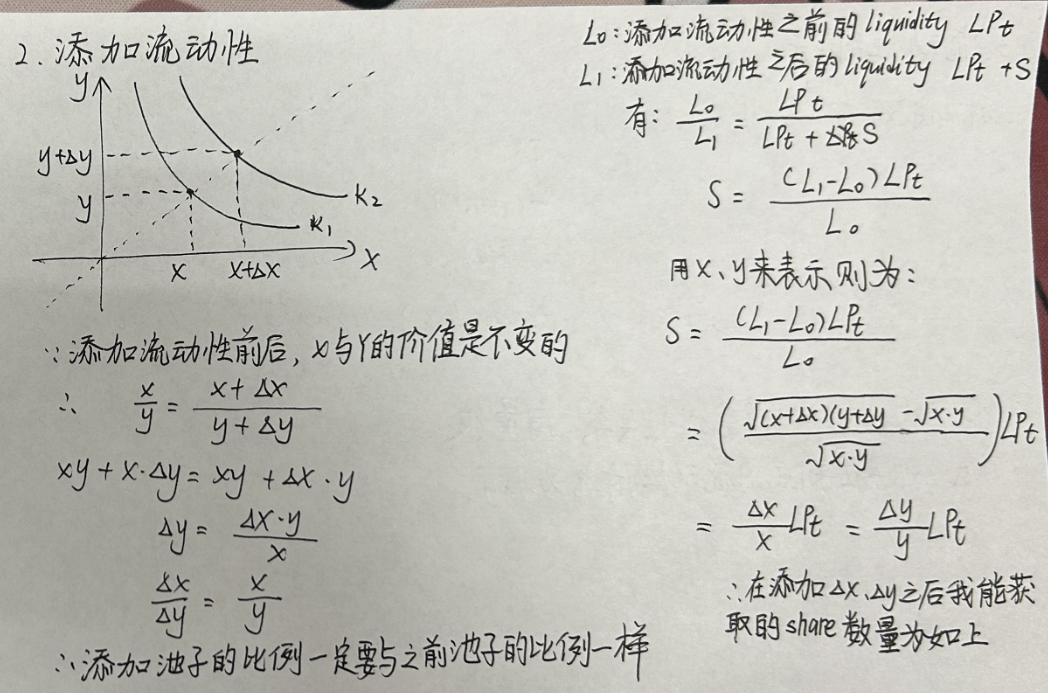 2. 添加流动性
y
y+Δy
y
x
x+Δx
X
K₂
K₁
∵添加流动性前后, X与Y的价值是不变的
∴ x/y = (x+Δx)/(y+Δy)
xy + x·Δy = xy + Δx·y
Δy = Δx·y/x
Δx/Δy = x/y
∴添加池子的比例一定要与之前池子的比例一样
L₀:添加流动性之前的liquidity LPt
L₁:添加流动性之后的liquidity LPt +S
有: L₀/L₁ = LPt/(LPt + S)
S = (L₁-L₀)LPt/L₀
用X、y来表示则为:
S = (L₁-L₀)LPt/L₀
= ((√(x+Δx)(y+Δy) - √x·y)/√x·y)LPt
= Δx/x LPt = Δy/y LPt
∴在添加Δx、Δy之后我能获
取的share数量为如上